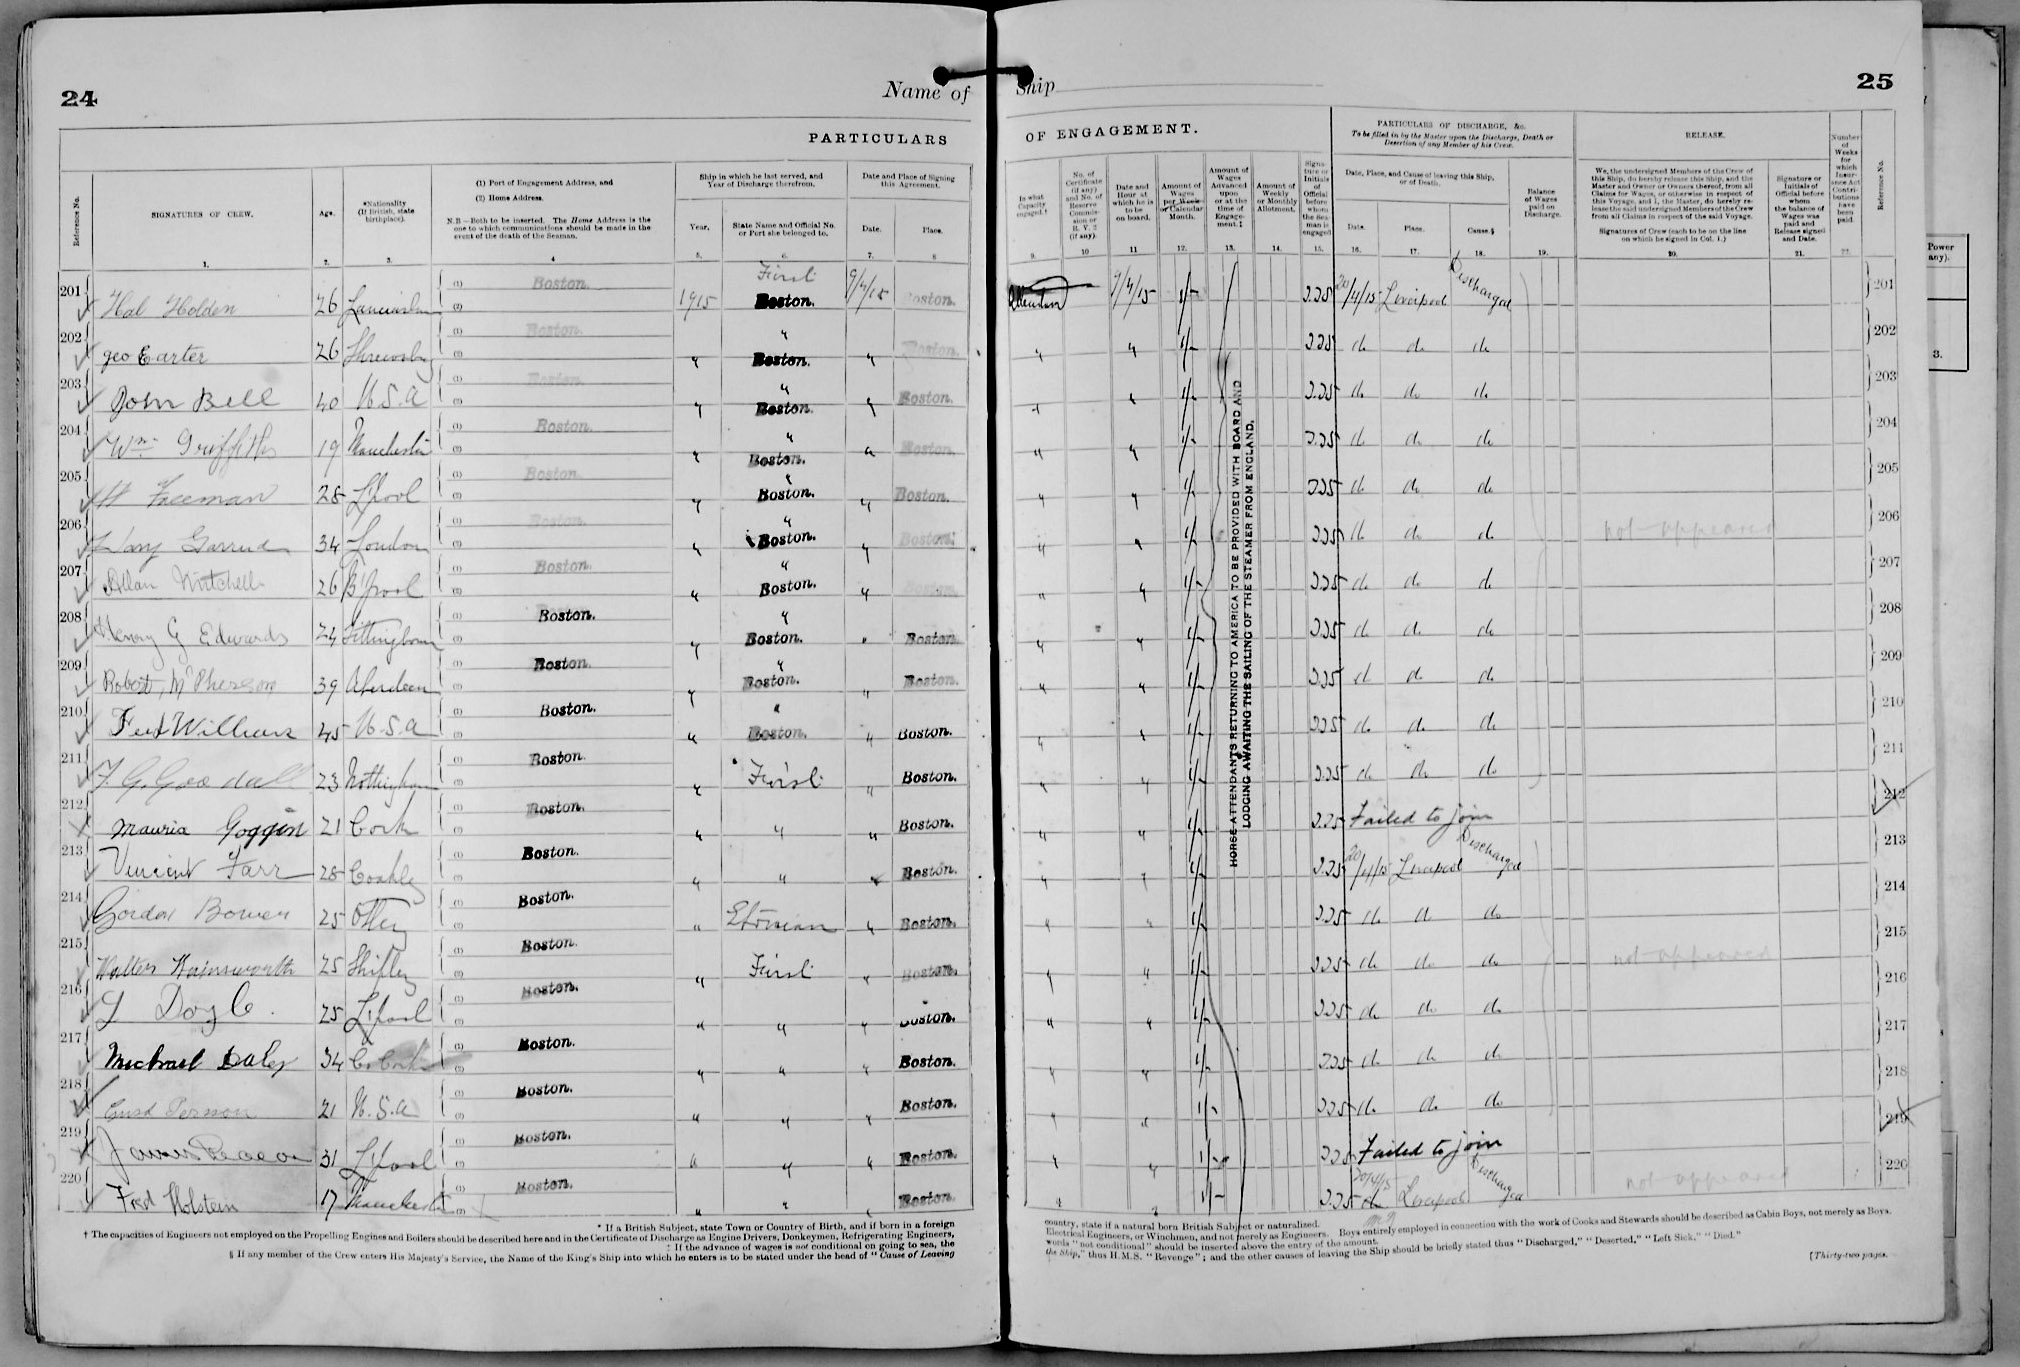 24
Name of
Ship
25
PARTICULARS
OF ENGAGEMENT.
PARTICULARS OF DISCHARGE, &c.
To be filled in by the Master upon the Discharge, Death or
Desertion of any Member of his Crew.
RELEASE.
Number of Weeks for which Insurance Act Contributions have been paid
Reference No.
SIGNATURES OF CREW.
Age.
*Nationality (If British, state birthplace).
(1) Port of Engagement Address, and
(2) Home Address.
N.B.—Both to be inserted. The Home Address is the
one to which communications should be made in the
event of the death of the Seaman.
Ship in which he last served, and
Year of Discharge therefrom.
Year.
State Name and Official No.
or Port she belonged to.
Date and Place of Signing
this Agreement.
Date.
Place.
In what Capacity engaged.†
No. of Certificate (if any) and No. of Reserve Commission or R. V. 2 (if any).
Date and Hour at which he is to be on board.
Amount of Wages per Week or Calendar Month.
Amount of Wages Advanced upon or at the time of Engagement.‡
Amount of Weekly or Monthly Allotment.
Signature or Initials of Official before whom the Seaman is engaged
Date, Place, and Cause of leaving this Ship,
or of Death.
Date.
Place.
Cause.§
Balance of Wages paid on Discharge.
We, the undersigned Members of the Crew of
this Ship, do hereby release this Ship, and the
Master and Owner or Owners thereof, from all
Claims for Wages, or otherwise in respect of
this Voyage, and I, the Master, do hereby release
the said undersigned Members of the Crew
from all Claims in respect of the said Voyage.
Signatures of Crew (each to be on the line
on which he signed in Col. 1.)
Signature or Initials of Official before whom the balance of Wages was paid and Release signed and Date.
Reference No.
1. 2. 3. 4 5. 6. 7. 8 9. 10 11 12. 13. 14. 15. 16. 17. 18. 19. 20. 21. 22.
201 Hal Holden 26 Boston. 1915 First Boston. 9/4/15 Boston. 9/4/15 1/- 20/4/15 Liverpool Discharged 201
202 geo Carter 26 Shrewsby Boston. " " Boston. " Boston. " " 1/- do do do 202
203 John Bell 40 U.S.A Boston. " " Boston. " Boston. " " 1/- do do do 203
204 Wm Griffiths 19 Manchester Boston. " " Boston. " Boston. " " 1/- do do do 204
205 H Freeman 28 L'pool Boston. " " Boston. " Boston. " " 1/- do do do 205
206 London 34 Boston. " " Boston. " Boston. " " 1/- do do do not appeared 206
207 Allan Mitchell 26 B'pool Boston. " " Boston. " Boston. " " 1/- do do do 207
208 Henry G Edwards 24 Sittingbourn Boston. " " Boston. " Boston. " " 1/- do do do 208
209 Robert McPherson 39 Aberdeen Boston. " " Boston. " Boston. " " 1/- do do do 209
210 Fred Williams 45 U.S.A Boston. " " Boston. " Boston. " " 1/- do do do 210
211 F. G. Goodall 23 Nottingham Boston. " First " Boston. " " 1/- do do do 211
212 Maurice Goggin 21 Cork Boston. " " " Boston. " " 1/- Failed to join 212
213 Vincent Farr 28 Boston. " " " Boston. " " 1/- 20/4/15 Liverpool Discharged 213
214 Gordon Bower 25 Otley Boston. " Etonian " Boston. " " 1/- do do do 214
215 Walter Hainsworth 25 Shipley Boston. " First " Boston. " " 1/- do do do not appeared 215
216 Doyle 25 L'pool Boston. " " " Boston. " " 1/- do do do 216
217 Michael Daley 34 Co Cork Boston. " " " Boston. " " 1/- do do do 217
218 21 U.S.A Boston. " " " Boston. " " 1/- do do do 218
219 James 31 L'pool Boston. " " " Boston. " " 1/- Failed to join 219
220 Fred Holstein 17 Manchester Boston. " " " Boston. " " 1/- 20/4/15 do Liverpool Discharged not appeared 220
HORSE-ATTENDANTS RETURNING TO AMERICA TO BE PROVIDED WITH BOARD AND
LODGING AWAITING THE SAILING OF THE STEAMER FROM ENGLAND.
Power
any).
3.
* If a British Subject, state Town or Country of Birth, and if born in a foreign
country, state if a natural born British Subject or naturalized.
† The capacities of Engineers not employed on the Propelling Engines and Boilers should be described here and in the Certificate of Discharge as Engine Drivers, Donkeymen, Refrigerating Engineers,
Electrical Engineers, or Winchmen, and not merely as Engineers. Boys entirely employed in connection with the work of Cooks and Stewards should be described as Cabin Boys, not merely as Boys.
‡ If the advance of wages is not conditional on going to sea, the
words "not conditional" should be inserted above the entry of the amount.
§ If any member of the Crew enters His Majesty's Service, the Name of the King's Ship into which he enters is to be stated under the head of "Cause of Leaving
the Ship," thus H.M.S. "Revenge"; and the other causes of leaving the Ship should be briefly stated thus "Discharged," "Deserted," "Left Sick," "Died."
[Thirty-two pages.